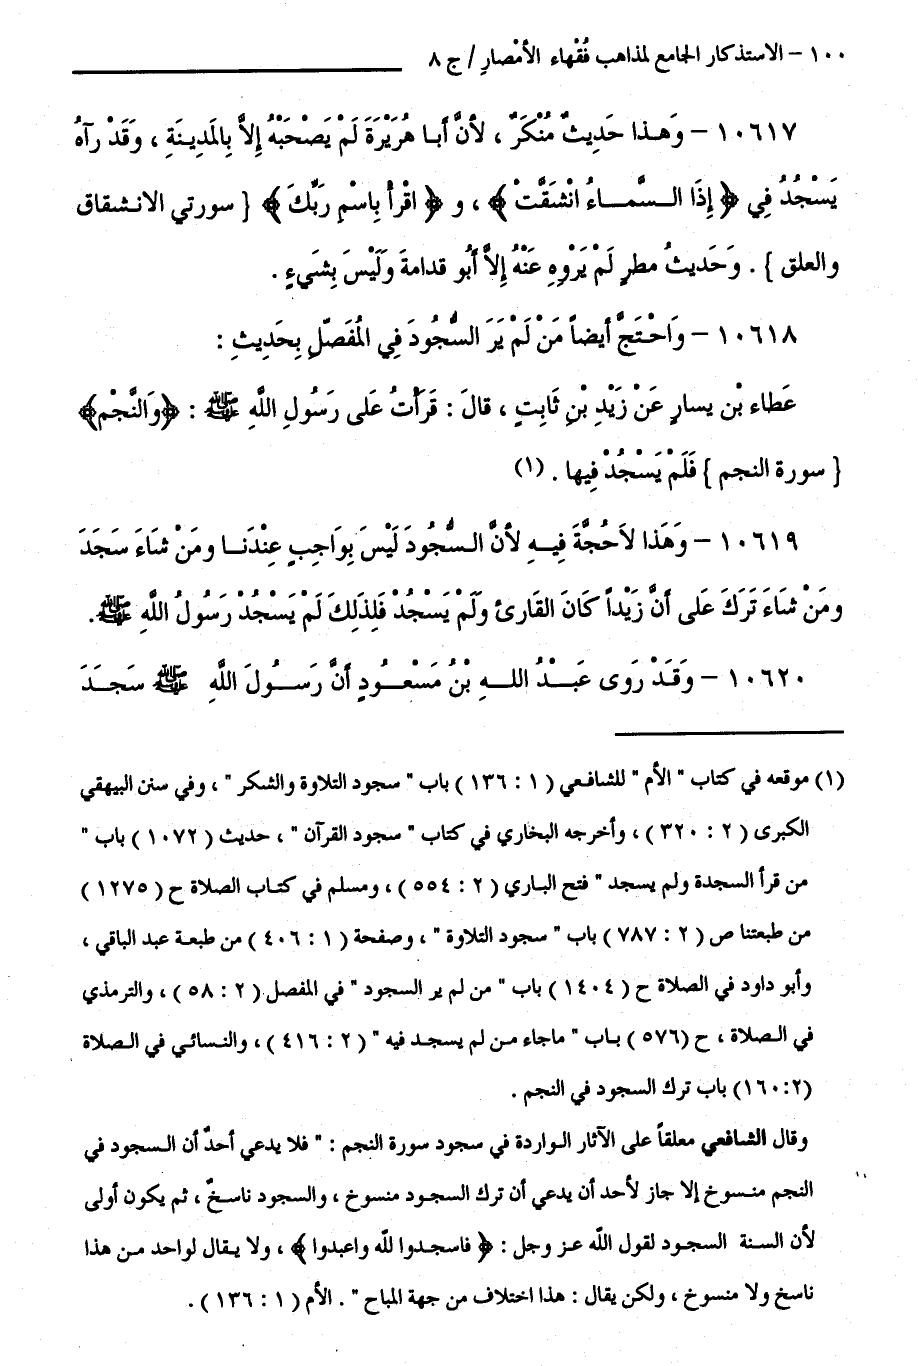 ١٠٠ – الاستذكار الجامع لمذاهب فُقْهاء الأمْصارِ / ج ٨
١٠٦١٧ – وَهـذا حَدِيثٌ مُنْكَرٌ ، لأنَّ أبـا هُرَيْرَةَ لَمْ يَصْحَبْهُ إلاَّ بِالَمدِينَةِ ، وَقَدْ رآهُ
يَسْجُدُ فِي ﴿ إِذَا السَّماءُ انْشَقَّتْ ﴾ ، و ﴿ اقْرأْ بِاسْمِ رَبِّكَ ﴾ { سورتي الانشقاق
والعلق } . وَحَديثُ مطرٍ لَمْ يَرْوِهِ عَنْهُ إلاَّ أبُو قدامةَ وَلَيْسَ بِشَيءٍ .
١٠٦١٨ – وَاحْتَجَّ أيضاً مَنْ لَمْ يَرَ السُّجُودَ فِي الُمفَصّلِ بِحَدِيثِ :
عَطاء بْن يسارٍ عَنْ زَيْدِ بْنِ ثَابِتٍ ، قالَ : قَرَأْتُ عَلى رَسُولِ اللَّهِ ﷺ : ﴿وَالنَّجْم﴾
{ سورة النجم } فَلَمْ يَسْجُدْ فِيها . (١)
١٠٦١٩ – وَهَذا لاَحُجَّةَ فِيهِ لأنَّ السُّجُودَ لَيْسَ بِوَاجِبٍ عِنْدَنا ومَنْ شَاءَ سَجَدَ
ومَنْ شاءَ تَرَكَ عَلى أنَّ زَيْداً كَانَ القَارئ وَلَمْ يَسْجُدْ فَلِذلِكَ لَمْ يَسْجُدْ رَسُولُ اللَّهِ ﷺ.
١٠٦٢٠ – وَقَـدْ رَوى عَبْدُ اللهِ بْنُ مَسْعُودٍ أنَّ رَسُولَ اللَّهِ ﷺ سَجَدَ
(١) موقعه في كتاب " الأم " للشافعي ( ١ : ١٣٦ ) باب " سجود التلاوة والشكر " ، وفي سنن البيهقي
الكبرى ( ٢ : ٣٢٠ ) ، وأخرجه البخاري في كتاب " سجود القرآن " ، حديث ( ١٠٧٢ ) باب "
من قرأ السجدة ولم يسجد " فتح الباري ( ٢ : ٥٥٤ ) ، ومسلم في كتاب الصلاة ح ( ١٢٧٥ )
من طبعتنا ص ( ٢ : ٧٨٧ ) باب " سجود التلاوة " ، وصفحة ( ١ : ٤٠٦ ) من طبعة عبد الباقي ،
وأبو داود في الصلاة ح ( ١٤٠٤ ) باب " من لم ير السجود " في المفصل ( ٢ : ٥٨ ) ، والترمذي
في الصلاة ، ح (٥٧٦ ) باب " ماجاء من لم يسجد فيه " ( ٢ : ٤١٦ ) ، والنسائي في الصلاة
(١٦٠:٢) باب ترك السجود في النجم .
وقال الشافعي معلقاً على الآثار الواردة في سجود سورة النجم : " فلا يدعي أحدٌ أن السجود في
النجم منسوخ إلا جاز لأحد أن يدعي أن ترك السجود منسوخ ، والسجود ناسخٌ ، ثم يكون أولى
لأن السنة السجود لقول اللّه عز وجل : ﴿ فاسجدوا للّه واعبدوا ﴾ ، ولا يقال لواحد من هذا
ناسخ ولا منسوخ ، ولكن يقال : هذا اختلاف من جهة المباح " . الأم ( ١ : ١٣٦ ) .